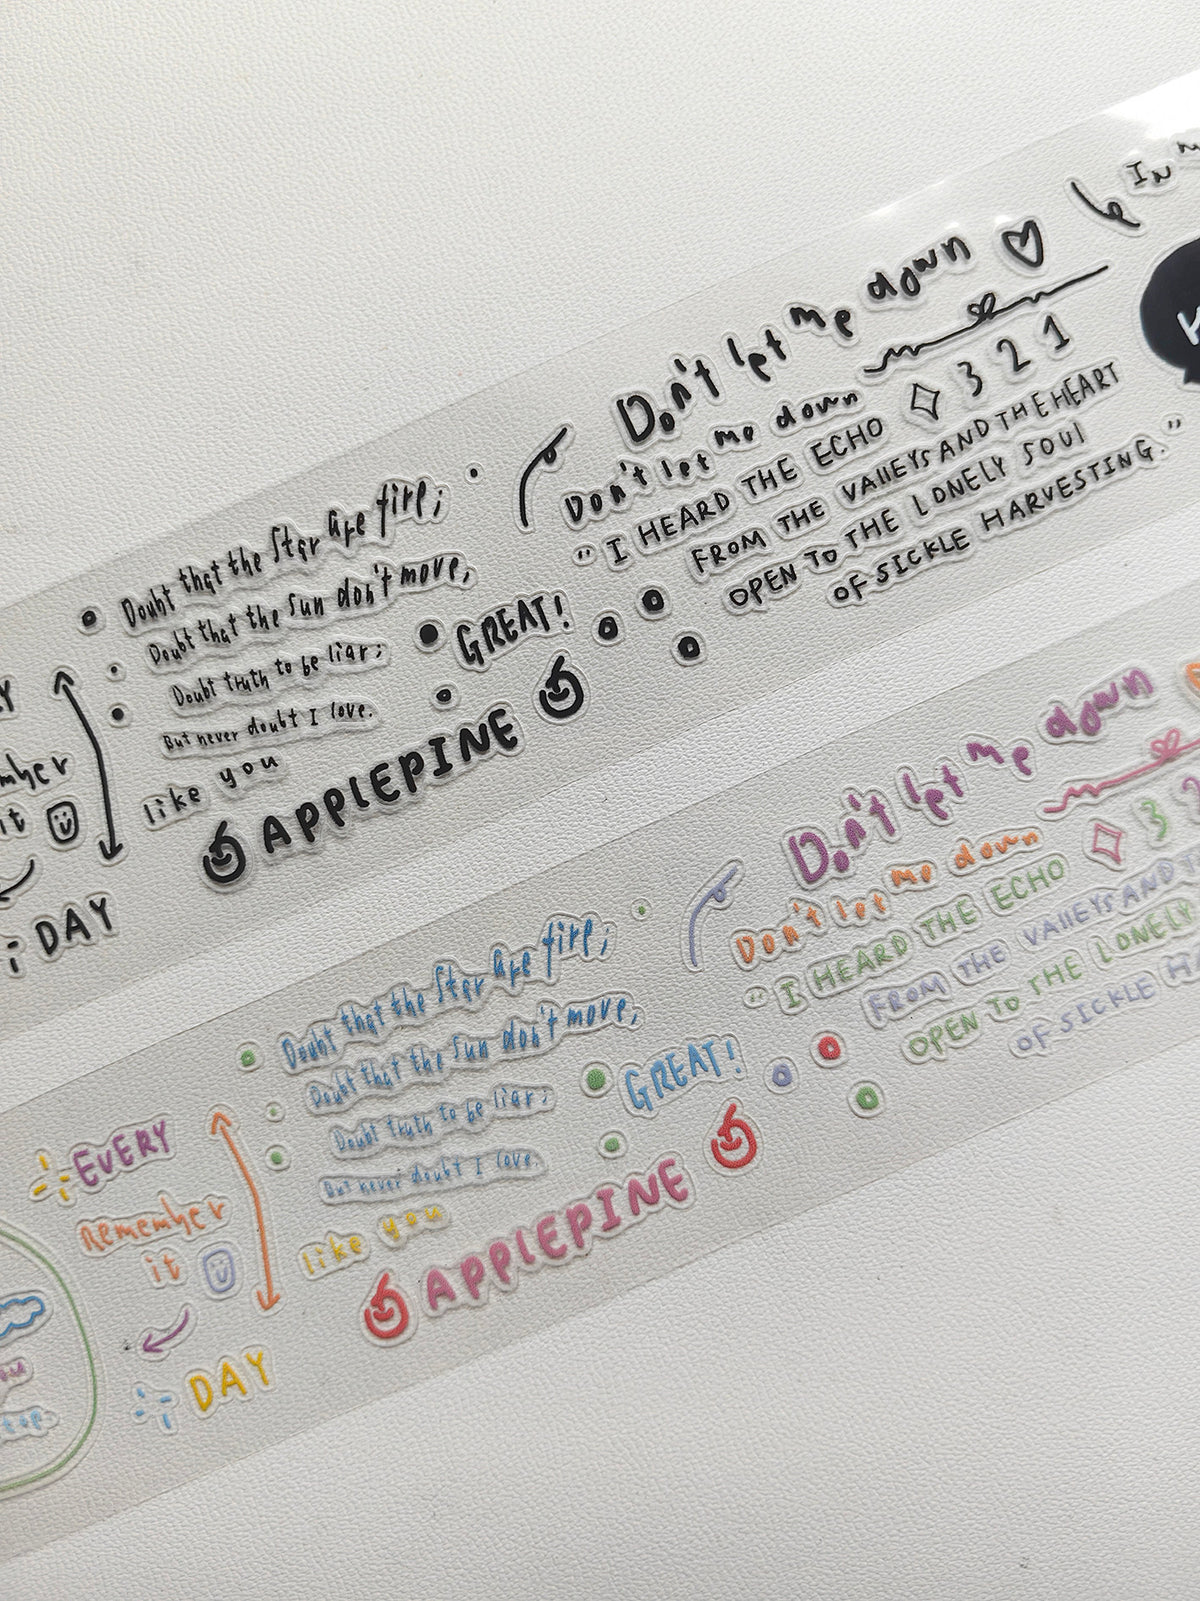 IN
Don't let me down
Don't let me down
3 2 1
"I HEARD THE ECHO
FROM THE VAllEYS AND THE HEART
OPEN TO THE LONELY SOUl
OF SICKLE HARVESTING."
Doubt that the Star are fire;
Doubt that the sun don't move,
Doubt truth to be liar;
But never doubt I love.
like you
GREAT!
APPLEPINE
it
DAY
Don't let me down
Don't let me down
3 2
"I HEARD THE ECHO
FROM THE VAllEYS AND
OPEN TO THE LONELY
OF SICKLE
Doubt that the Star are fire;
Doubt that the sun don't move,
Doubt truth to be liar;
But never doubt I love.
like you
GREAT!
APPLEPINE
EVERY
Remember
it
DAY